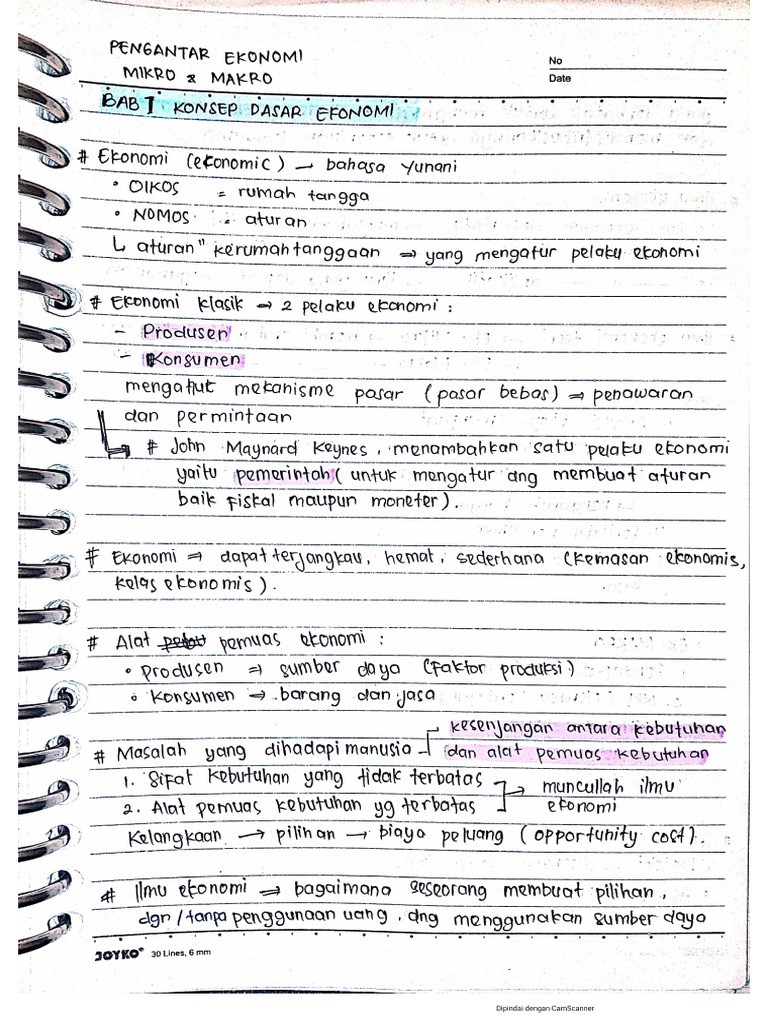 PENGANTAR EKONOMI
MIKRO & MAKRO
No
Date
BAB 1 KONSEP DASAR EKONOMI
# Ekonomi (ekonomic) → bahasa Yunani
• OIKOS = rumah tangga
• NOMOS = aturan
↳ aturan" kerumahtanggaan ⇒ yang mengatur pelaku ekonomi
# Ekonomi klasik → 2 pelaku ekonomi :
- Produsen
- Konsumen
mengatut mekanisme pasar (pasar bebas) ⇒ penawaran
dan permintaan
↳ # John Maynard Keynes, menambahkan satu pelaku ekonomi
yaitu pemerintah (untuk mengatur ang membuat aturan
baik fiskal maupun moneter).
# Ekonomi ⇒ dapat terjangkau, hemat, sederhana (kemasan ekonomis,
kelas ekonomis).
# Alat pemuas ekonomi :
• Produsen ⇒ sumber daya (faktor produksi)
• Konsumen → barang dan jasa
# Masalah yang dihadapi manusia kesenjangan antara kebutuhan
dan alat pemuas kebutuhan
1. Sifat kebutuhan yang tidak terbatas → muncullah ilmu
2. Alat pemuas kebutuhan yg terbatas ekonomi
Kelangkaan → pilihan → biaya peluang (opportunity cost).
# Ilmu ekonomi ⇒ bagaimana seseorang membuat pilihan,
dgn/tanpa penggunaan uang, dng menggunakan sumber daya
JOYKO® 30 Lines, 6 mm
Dipindai dengan CamScanner